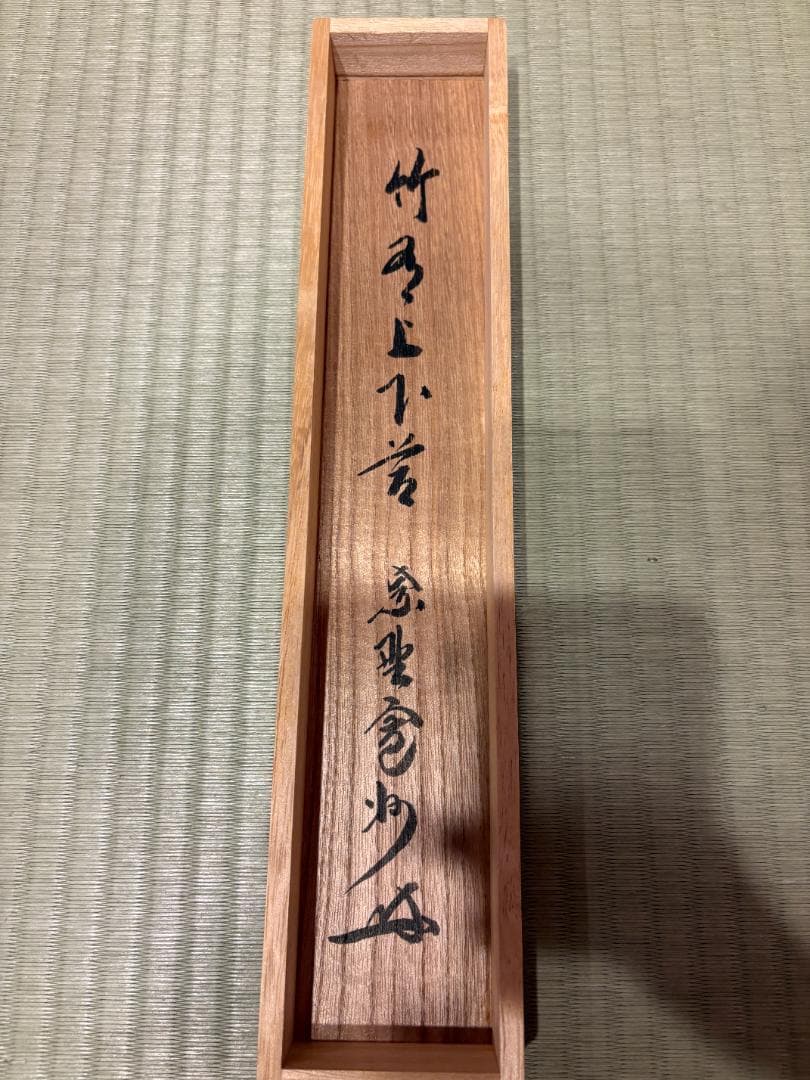 竹有上下節 紫野寛州書